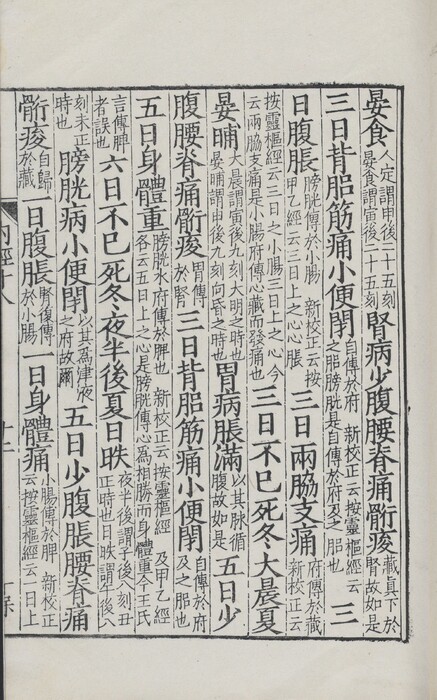 晏食人定謂申後二十五刻晏食謂寅後二十五刻腎病少腹腰脊痛䯒痠藏真下於腎故如是
三日背䏚筋痛小便閉自傳於府 新校正云按靈樞經云之䏚膀胱是自傳於府及之䏚也三
日腹脹膀胱傳於小腸 新校正云按甲乙經云三日上之心心脹三日兩脇支痛府傳於藏 新校正云
按靈樞經云三日之小腸三日上之心今云兩脇支痛是小腸府傳心藏而發痛也三日不已死冬大晨夏
晏晡大晨謂寅後九刻大明之時也晏晡謂申後九刻向昏之時也胃病脹滿以其脉循腹故如是五日少
腹腰脊痛䯒痠胃傳於腎三日背䏚筋痛小便閉自傳於府及之䏚也
五日身體重膀胱水府傳於脾也 新校正云按靈樞經及甲乙經各云五日上之心是膀胱傳心為相勝而身體重今王氏
言傳脾者誤也六日不已死冬夜半後夏日昳夜半後謂子後八刻丑正時也日昳謂午後八
刻未正時也膀胱病小便閉以其為津液之府故爾五日少腹脹腰脊痛
䯒痠自歸於藏一日腹脹腎復傳於小腸一日身體痛小腸傳於脾 新校正云按靈樞經云一日上
內經十八
十二